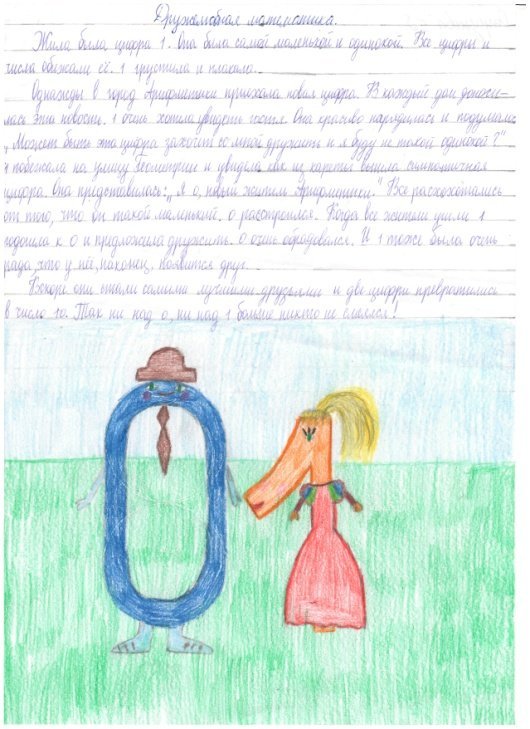 Дружелюбная математика.
Жила была цифра 1. Она была самой маленькой и одинокой. Все цифры и
числа обижали её. 1 грустила и плакала.
Однажды в город Арифметики приехала новая цифра. В каждый дом донес-
лась эта новость. 1 очень хотела увидеть гостя. Она красиво нарядилась и подумала:
„Может быть эта цифра захочет со мной дружить и я буду не такой одинокой?"
1 побежала на улицу Геометрии и увидела как из кареты вышла симпатичная
цифра. Она представилась: „Я 0, новый житель Арифметики." Все расхохотались
от того, что он такой маленький. 0 расстроился. Когда все жители ушли 1
подошла к 0 и предложила дружить. 0 очень обрадовался. И 1 тоже была очень
рада, что у неё, наконец, появится друг.
Вскоре они стали самыми лучшими друзьями и две цифры превратились
в число 10. Так ни над 0, ни над 1 больше никто не смеялся!